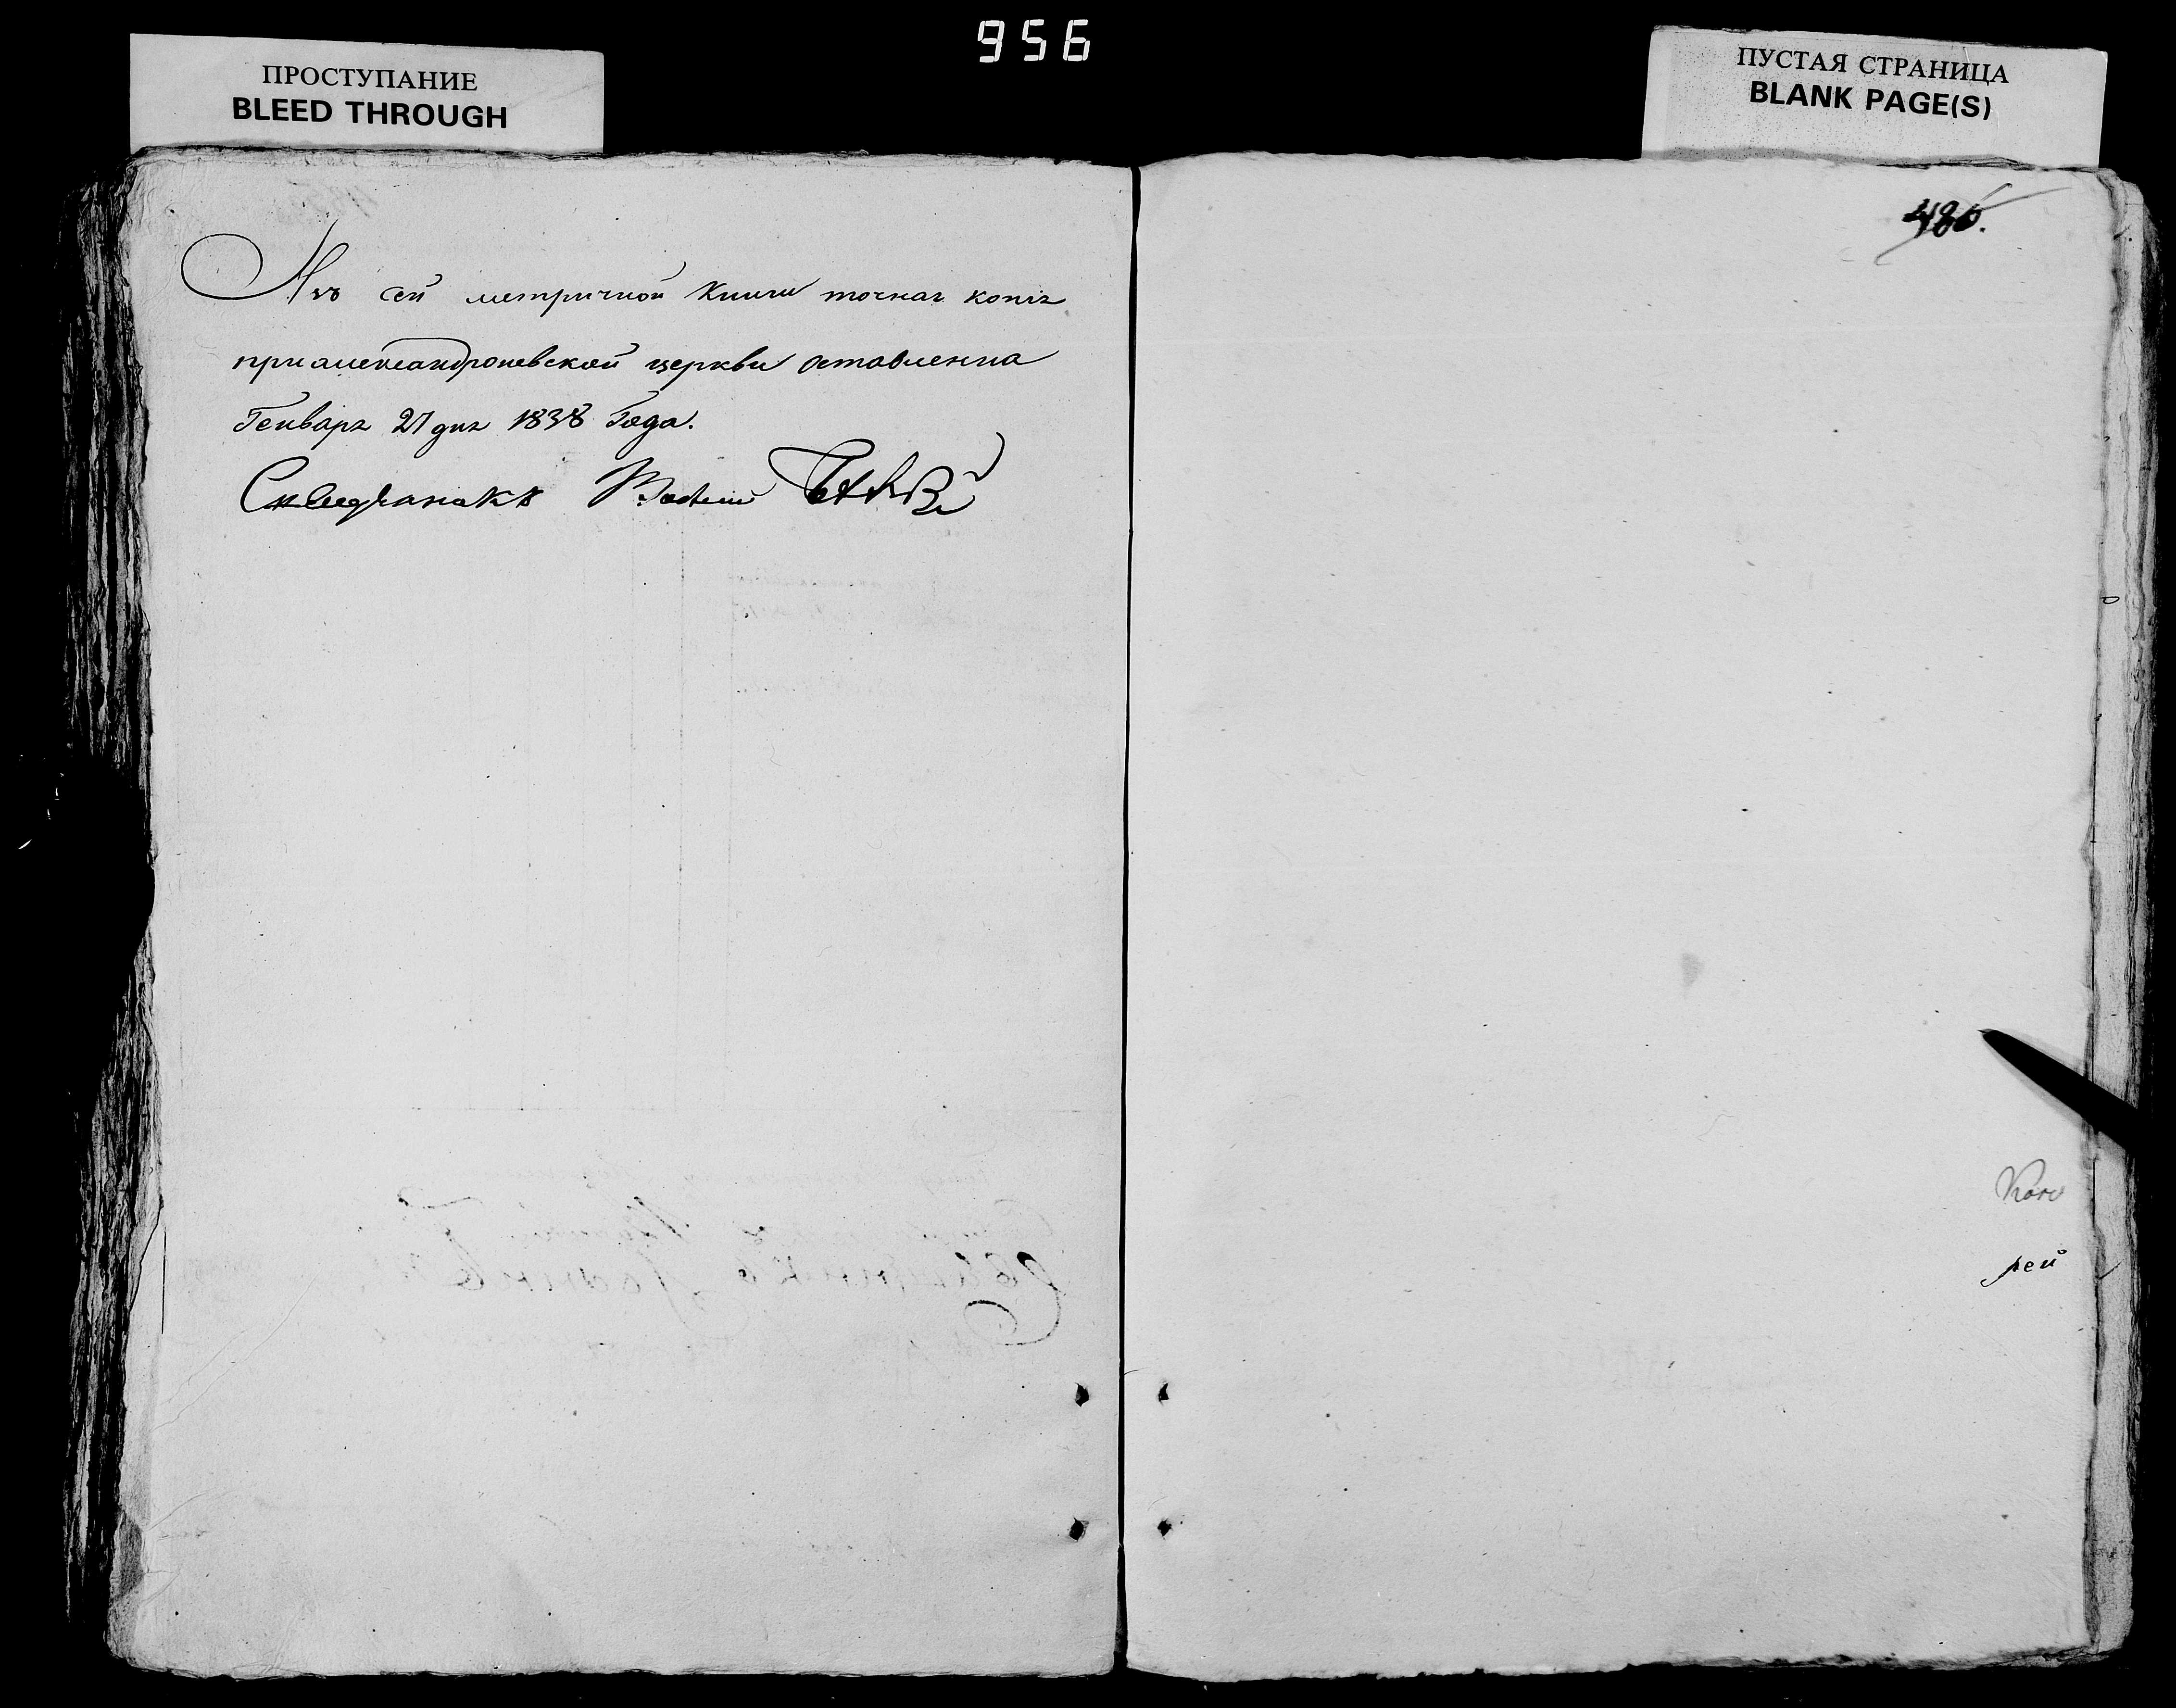 956
ПРОСТУПАНИЕ
BLEED THROUGH
ПУСТАЯ СТРАНИЦА
BLANK PAGE(S)
Изъ сей метричной книги точная копія
при александроневской церкви оставленна
Генваря 27 дня 1838 Года.
486.
рей